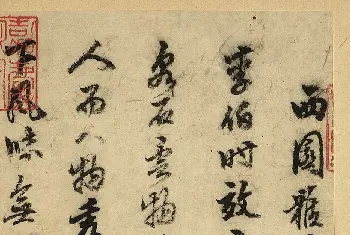 西園雅
李伯時效
泉石雲物
人而人物秀
下風味無